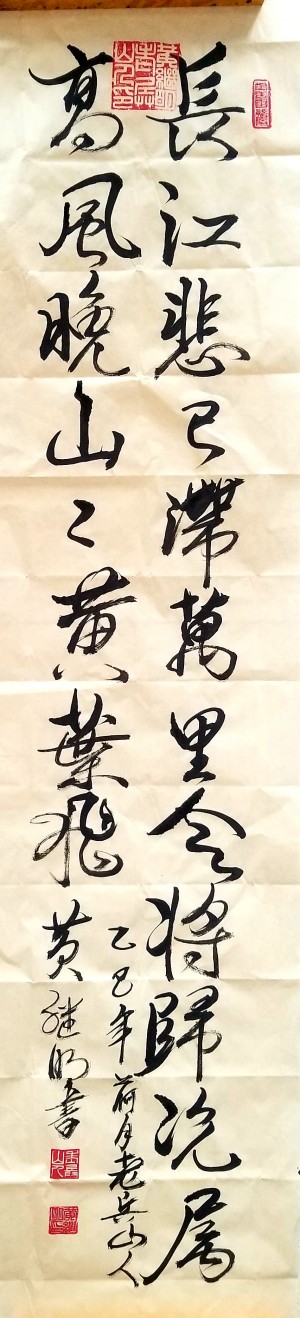 長江悲已滯萬里念將歸况屬
高風晚山々黃葉飛
乙巳年荷月老兵山人
黄继明書